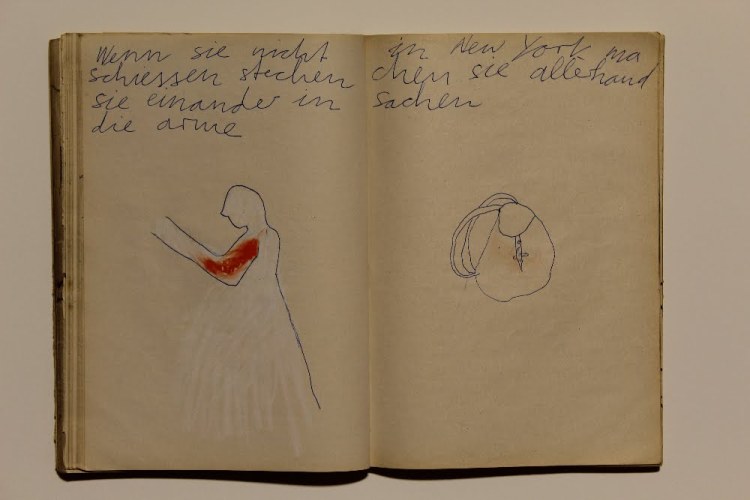 Wenn sie nicht
schiessen stechen
sie einander in
die arme
in New York ma
chen sie allerhand
sachen